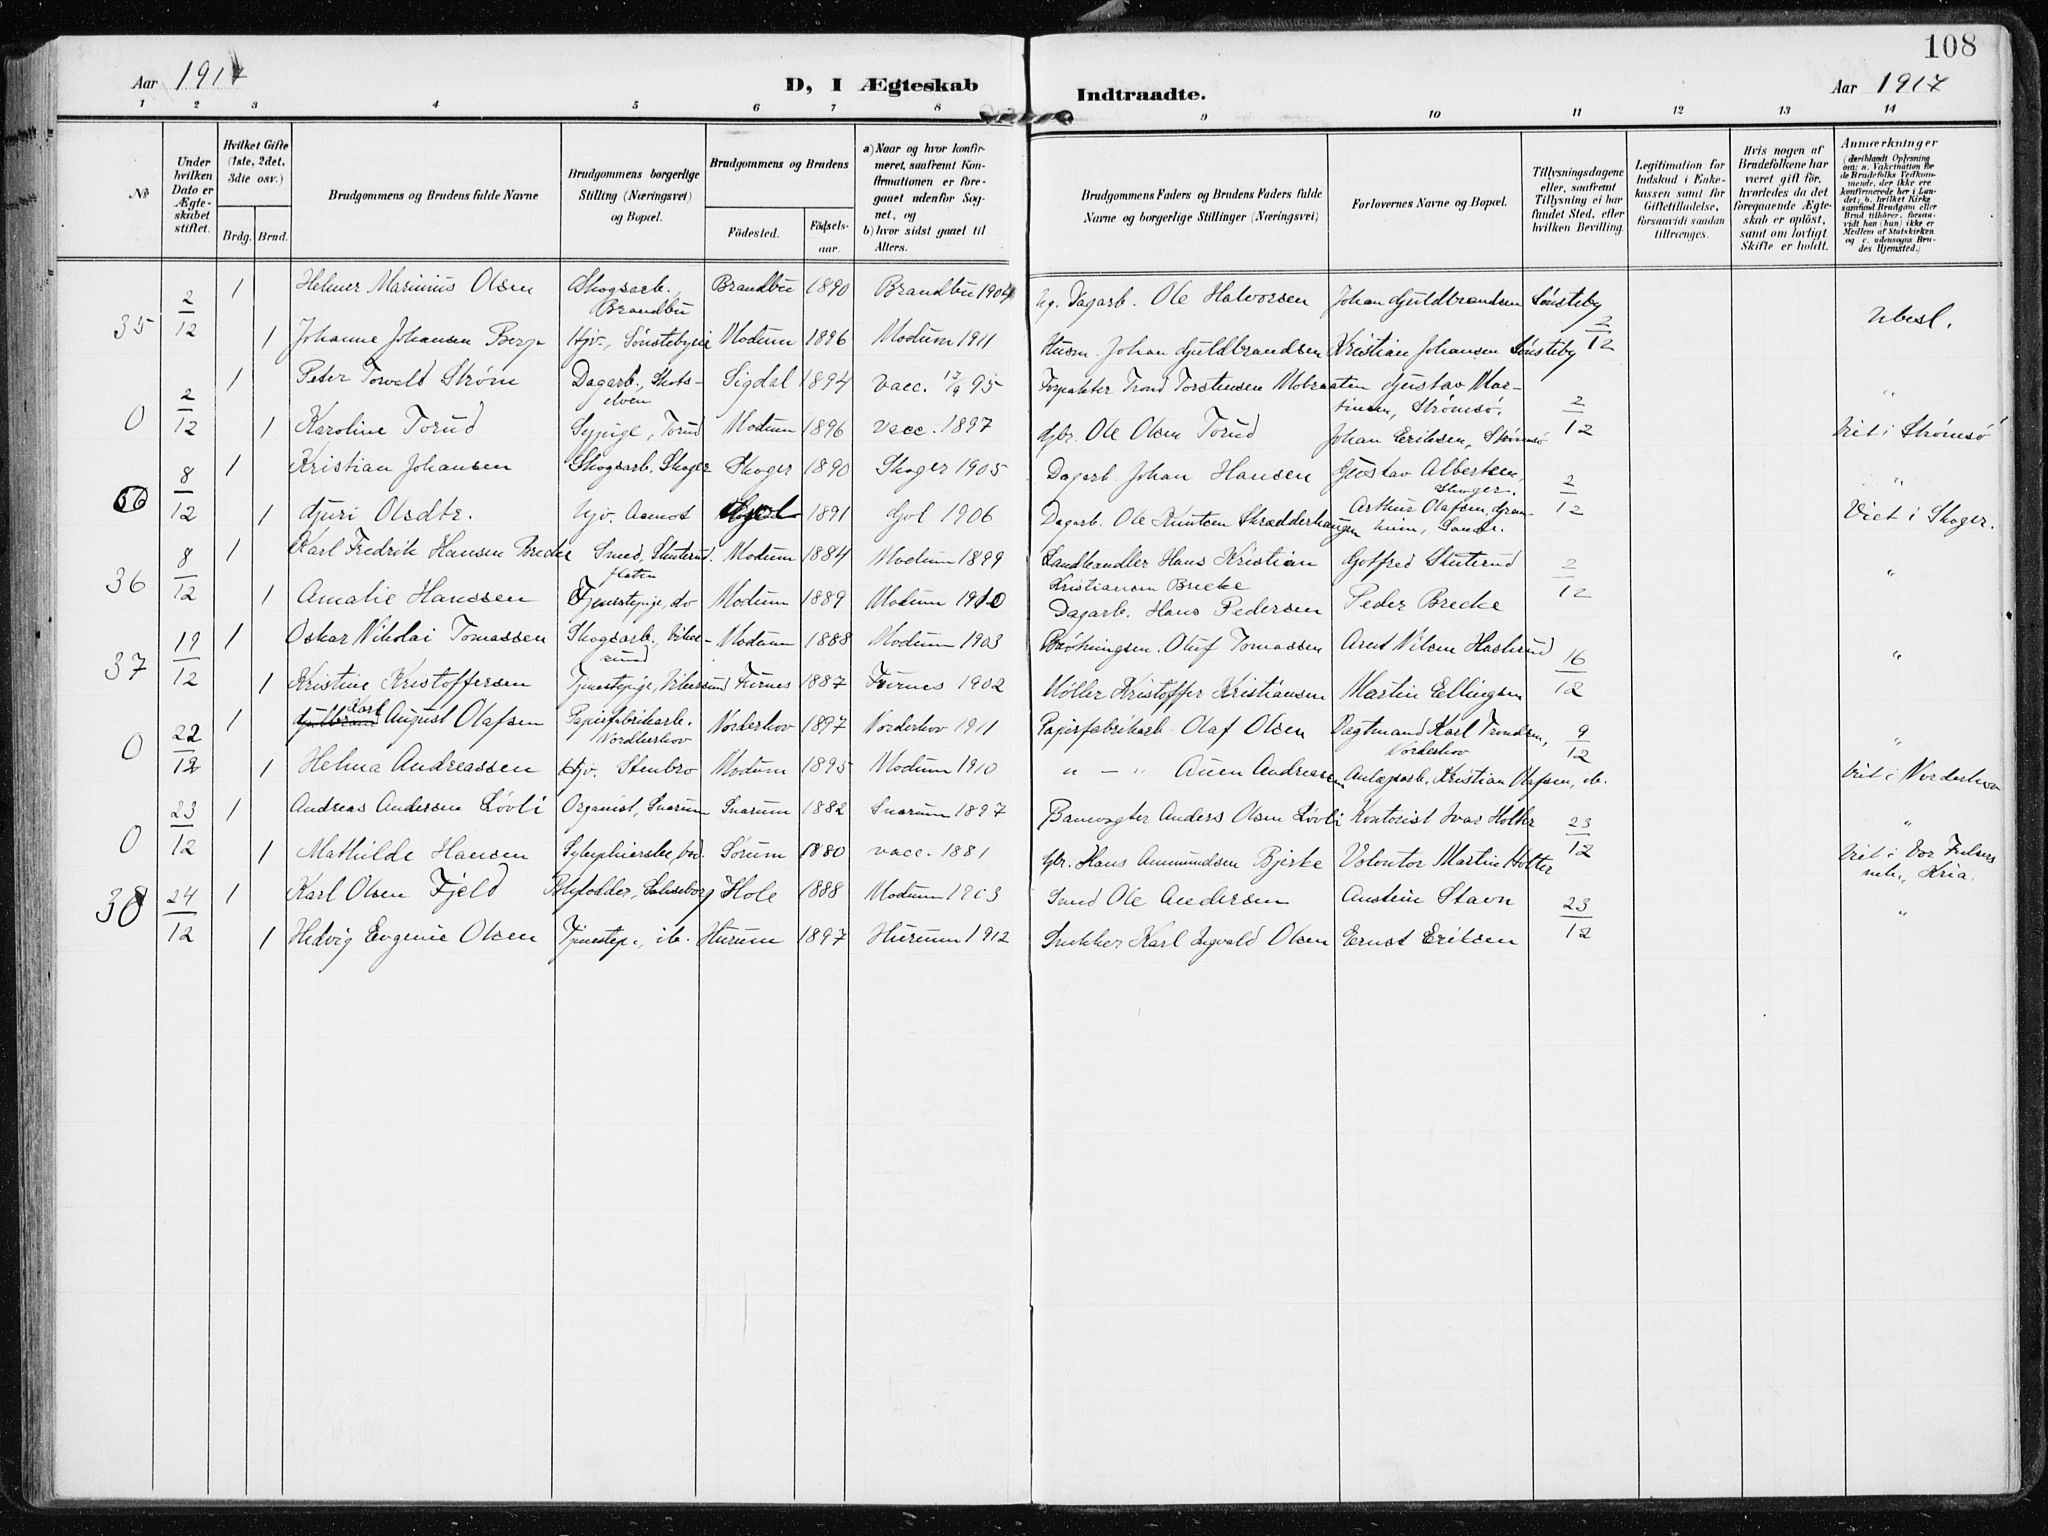 108
Aar 1917
D, I Ægteskab Indtraadte.
Aar 1917
1 2 3 4 5 6 7 8 9 10 11 12 13 14
No
Under hvilken Dato er Ægteskabet stiftet.
Hvilket Gifte (1ste, 2det, 3die osv.)
Brdg. Brud.
Brudgommens og Brudens fulde Navne
Brudgommens borgerlige Stilling (Næringsvei) og Bopæl.
Brudgommens og Brudens
Fødested. Fødselsaar.
a) Naar og hvor konfirmeret, saafremt Konfirmationen er foregaaet udenfor Sognet, og
b) hvor sidst gaaet til Alters.
Brudgommens Faders og Brudens Faders fulde Navne og borgerlige Stillinger (Næringsvei)
Forlovernes Navne og Bopæl.
Tillysningsdagene eller, saafremt Tillysning ei har fundet Sted, efter hvilken Bevilling.
Legitimation for Indskud i Enkekassen samt for Giftetilladelse, forsaavidt saadan tiltrænges.
Hvis nogen af Brudefolkene har været gift før, hvorledes da det foregaaende Ægteskab er opløst, samt om lovligt Skifte er holdt.
Anmærkninger
(deriblandt Oplysning om: a. Vakcination for de Brudefolks Vedkommende, der ikke ere konfirmerede her i Landet; b. hvilket Kirkesamfund Brudgom eller Brud tilhører, forsaavidt han (hun) ikke er Medlem af Statskirken og c. udensogns Brudes Hjemsted.)
35 2/12 1 Helmer Marinius Olsen Skogsarb. Brandbu Brandbu 1890 Brandbu 1904 Dagarb. Ole Halvorsen Johan Guldbrandsen Sønsteby 2/12 Ubesl.
1 Johanne Johansen Berg Hjv., Modum 1896 Modum 1911 Husm. Johan Guldbrandsen Kristian Johansen Sønsteby
0 2/12 1 Peter Torvald Strøm Dagarb., Skotselven Sigdal 1894 vacc. 17/9 95 Forpakter Trond Torstensen Gustav Martinsen, Strømsø. 2/12 "
1 Karoline Torud Sypige, Torud Modum 1896 vacc. 1897 Gbr. Ole Olsen Torud Johan Eriksen, Strømsø Viet i Strømsø
8/12 1 Kristian Johansen Skogsarb. Skoger Skoger 1890 Skoger 1905 Dagarb. Johan Hansen Gustav Albertsen, Skoger. 2/12 "
1 Guri Olsdtr. Hjv. Aamot Gol 1891 Gol 1906 Dagarb. Ole Knutsen Skrædderhaugen Arthur Olafsen, Viet i Skoger.
36 8/12 1 Karl Fredrik Hansen Brecke Smed, Skuterud. Modum 1884 Modum 1899 Landhandler Hans Kristian Kristiansen Brecke Gotfred Skuterud 2/12 "
1 Amalie Hanssen Tjenestepige, do Modum 1889 Modum 1910 Dagarb. Hans Pedersen Peder Brecke
37 19/12 1 Oskar Nikolai Tomassen Skogsarb., Vikesund Modum 1888 Modum 1903 Olaf Tomassen Arnt Nilsen Haslerud 16/12 "
1 Kristine Kristoffersen Tjenestepige, Vikersund Furnes 1887 Furnes 1902 Møller Kristoffer Kristiansen Martin Ellingsen
0 22/12 1 Karl August Olafsen Papirfabrikarb. Norderhov Norderhov 1897 Norderhov 1911 Papirfabrikarb. Olaf Olsen Vagtmand Karl Trondsen, Norderhov 9/12 "
1 Helma Andreassen Hjv. Stenbro Modum 1895 Modum 1910 " — " Auen Andreasen Anlægsarb. Kristian Olafsen, ib. Viet i Norderhov
0 23/12 1 Andreas Andersen Løvli Organist, Snarum Snarum 1882 Snarum 1897 Banevogter Anders Olsen Løvli Kontorist Ivar Holter 23/12 "
1 Mathilde Hansen Sørum 1880 vacc. 1881 Gbr. Hans Ammundsen Bjerke Volontør Martin Holter Viet i Vor Frelsers Kria.
38 24/12 1 Karl Olsen Fjeld Hole 1888 Modum 1903 Smed Ole Andersen Austein Stavn 23/12 "
1 Hedvig Evgenie Olsen Tjenestep., ib. Hurum 1897 Hurum 1912 Snekker Karl Ingvald Olsen Ernst Eriksen